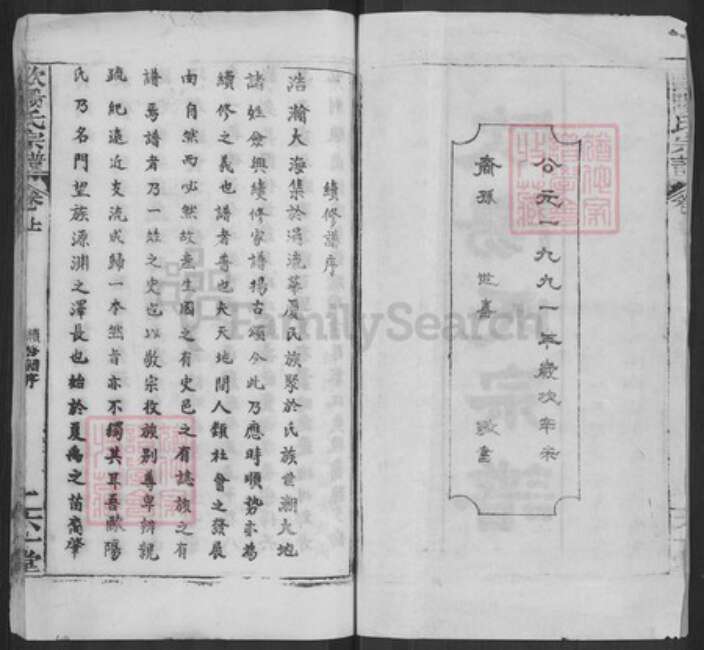 公元一九九一年歲次辛未
裔孫 世喜 敬書
續修譜序
浩瀚大海集於涓流華夏民族聚於氏族世潮大地
諸姓僉興續修家譜揚古頌今此乃應時順勢亦為
續修之義也譜者普也夫天地間人類社會之發展
由自然而必然故產生國之有史邑之有誌族之有
譜焉譜者乃一姓之史也以敦宗收族別尊卑辨親
疏紀遠近支流成歸一本然者亦不獨其耳吾歐陽
氏乃名門望族源淵之澤長也始於夏禹之苗裔肇
歐陽氏宗譜 卷上
續修譜序
六一堂
FamilySearch